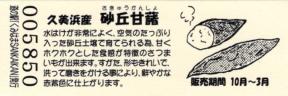 005850
久美浜産 砂丘甘藷
さきゅうかんしょ
水はけが非常によく、空気のたっぷり
入った砂丘土壌で育てられる為、甘く
ホクホクとした食感が特徴のさつま
いもが出来ます。すがた、形もきれいで、
洗って磨きをかける事により、鮮やかな
赤紫色に仕上がります。
販売期間 10月〜3月